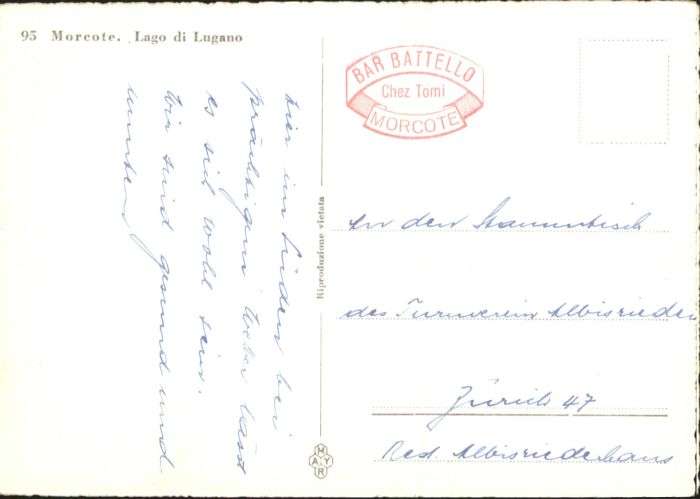 95 Morcote. Lago di Lugano
hier im Süden bei
prächtigem Wetter lässt
es sich wohl sein.
Wir sind gesund und
munter
Riproduzione vietata
MAYR
BAR BATTELLO
Chez Tomi
MORCOTE
An den Stammtisch
des Turnverein Albisrieden
Zürich 47
Rest. Albisriederhaus